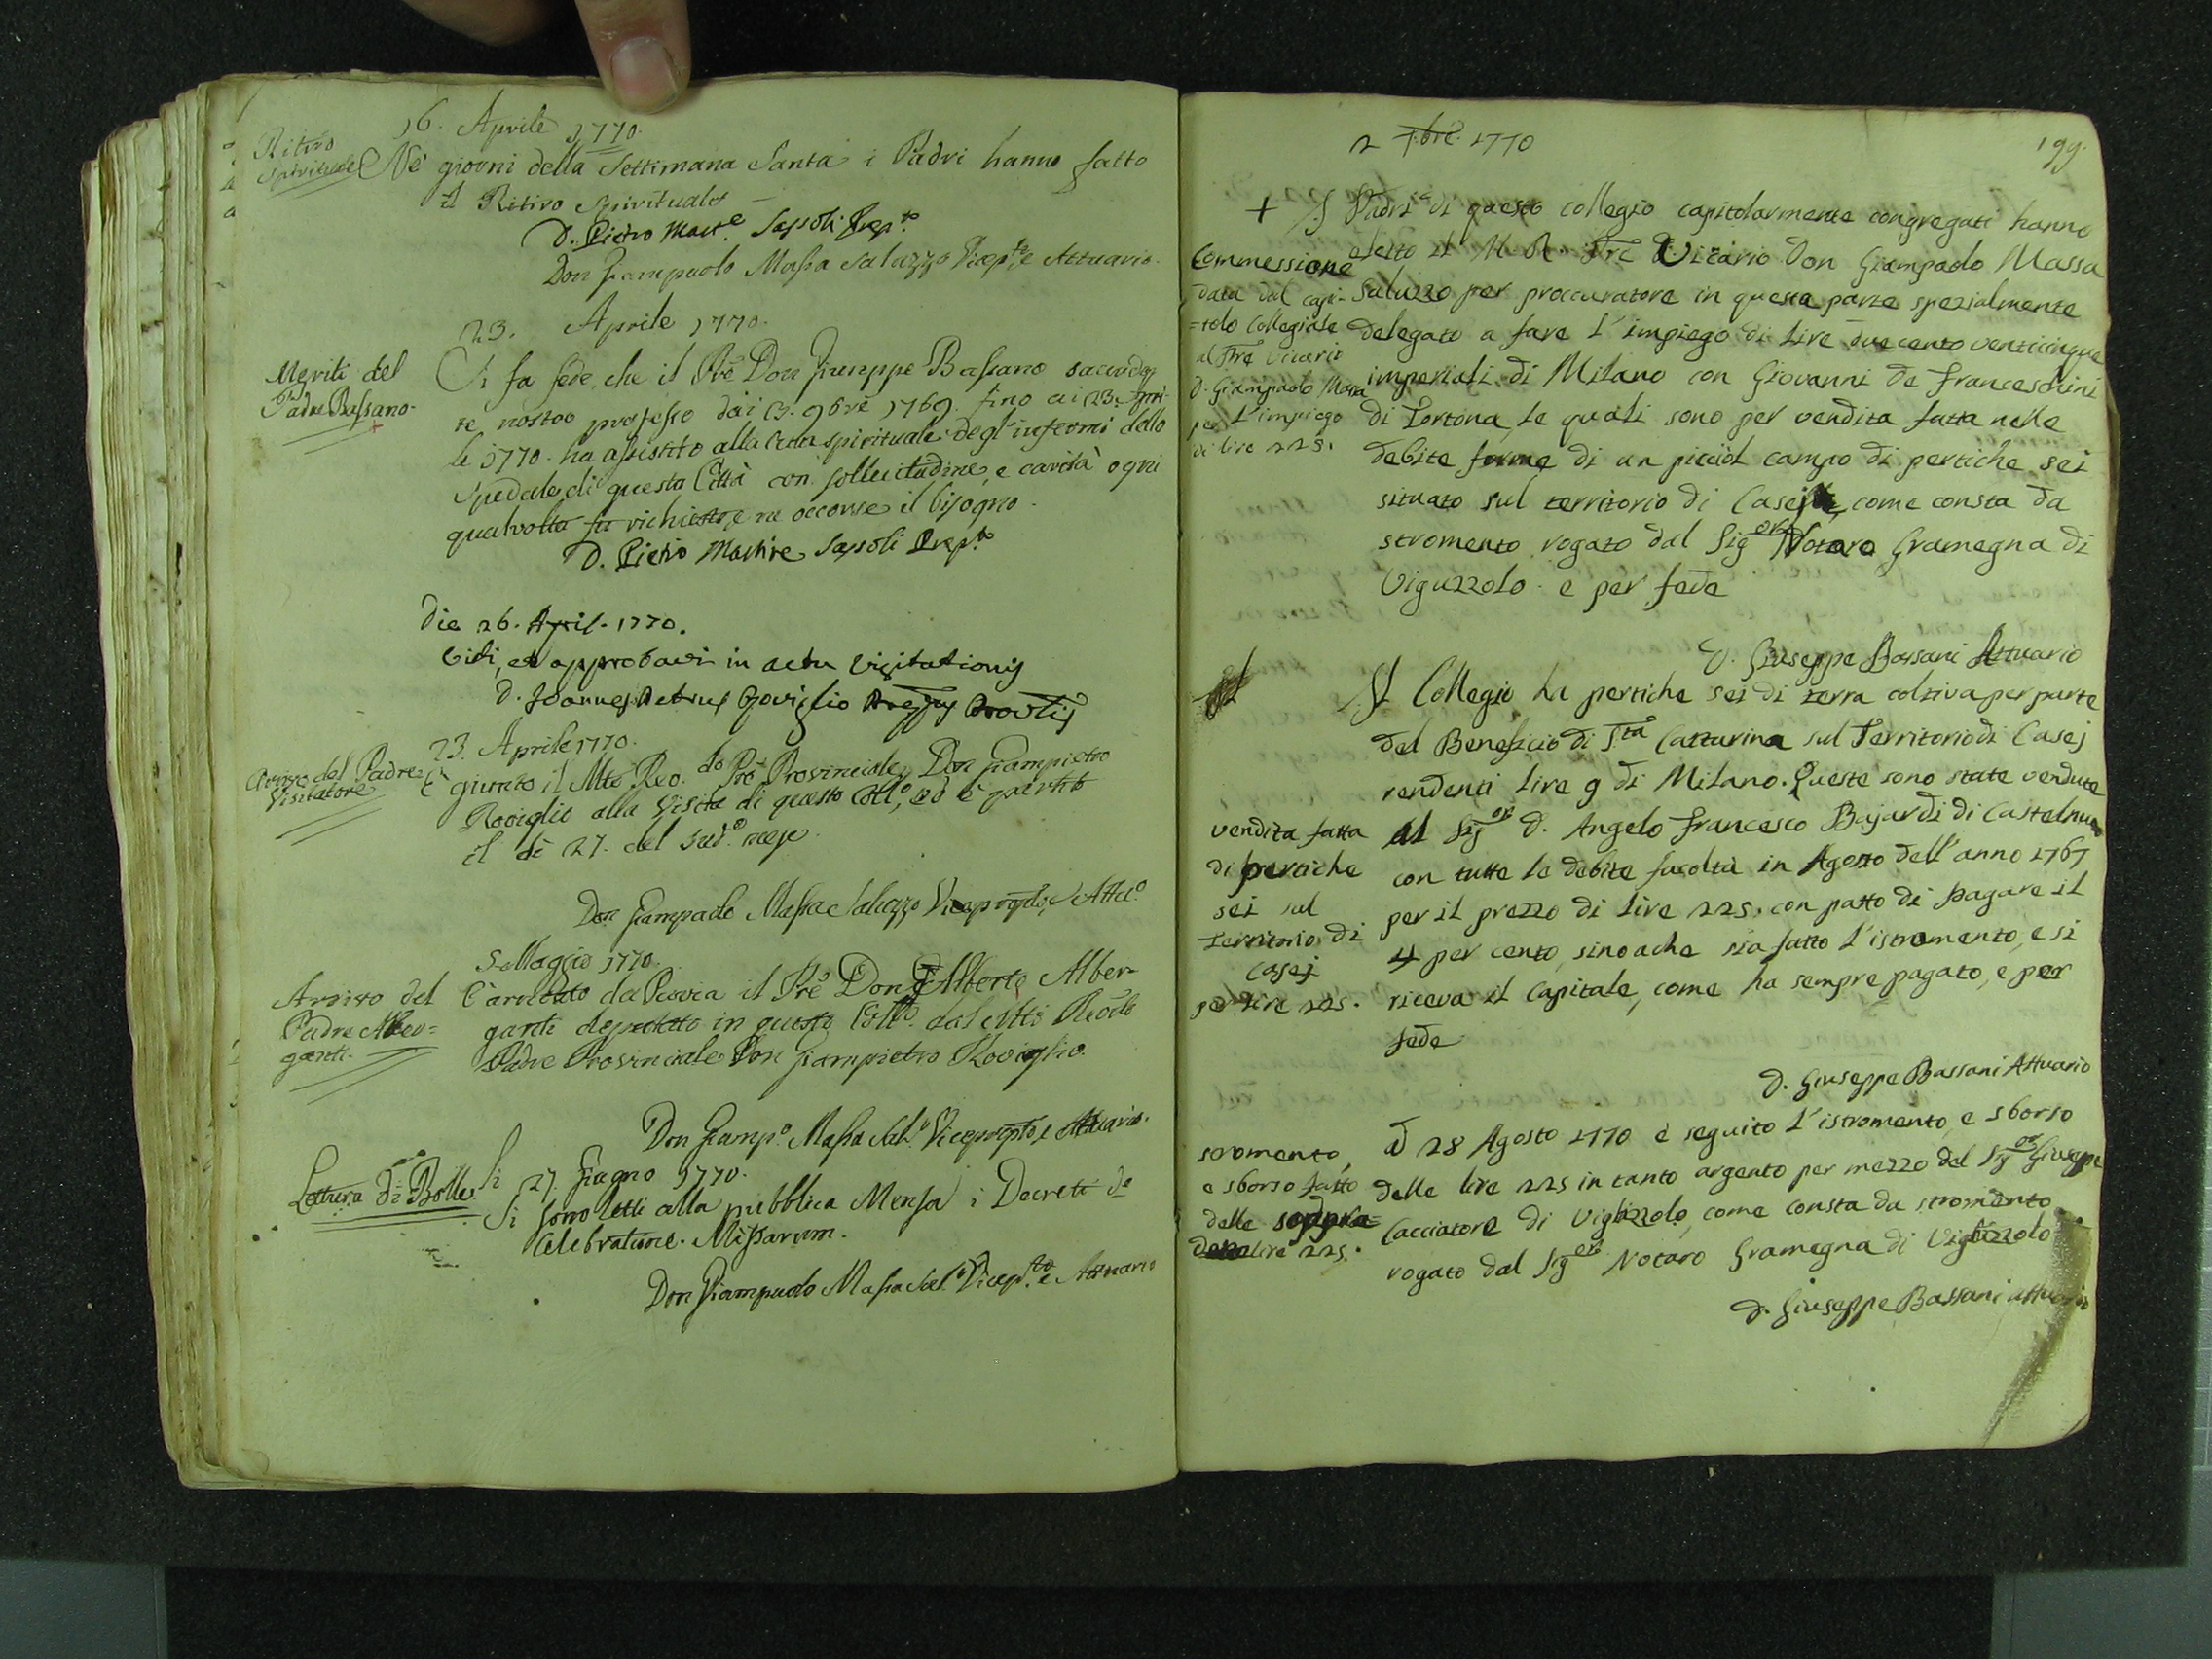 16. Aprile 1770.
Ritiro
Spirituale
Ne' giorni della Settimana Santa i Padri hanno fatto
il Ritiro Spirituale
D. Pietro Mart.e Sassoli Prep.to
Don Giampaolo Massa Saluzzo Vicep.to e Attuario.
23. Aprile 1770.
Meriti del
Padre Bassano.
Si fa fede, che il Pre Don Giuseppe Bassano sacerdo
te nostro professo dai 13. 9bre 1769. fino ai 23. Apri-
le 1770. ha assistito alla cura spirituale degl'infermi dello
Spedale di questa Città con sollecitudine, e carità ogni
qualvolta fu richiesto, e ne occorse il bisogno.
D. Pietro Martire Sassoli Prep.to
Die 26. April. 1770.
Vidi, et approbavi in actu Visitationis
D. Joannes Petrus Roviglio Prepus Provlis
23. Aprile 1770.
Arrivo del Padre
Visitatore
È giunto il Mto Reo.do Pre Provinciale Don Giampietro
Roviglio alla Visita di questo Coll.o, ed è partito
il dì 27. del sud.o mese.
Don Giampaolo Massa Saluzzo Viceprepto, e Att.o
5 Maggio 1770.
Arrivo del
Padre Alber=
ganti.
È arrivato da Pavia il Pre Don Alberto Alber-
ganti deputato in questo Coll.o dal Mto Reodo
Padre Provinciale Don Giampietro Roviglio.
Don Giamp.o Massa Sal.o Viceprepto, e Attuario.
Lettura di Bolle
li 27. Giugno 1770.
Si sono letti alla pubblica Mensa i Decreti de
Celebratione Missarum.
Don Giampaolo Massa Sal.o Vicep.to e Attuario
2 7.bre 1770
199.
+ I Padri di questo collegio capitolarmente congregati hanno
eletto il M. R. Pre Vicario Don Giampaolo Massa
Saluzzo per proccuratore in questa parte spezialmente
delegato a fare l'impiego di lire duecento venticinque
imperiali di Milano con Giovanni de Franceschini
di Tortona, le quali sono per vendita fatta nelle
debite forme di un picciol campo di pertiche sei
situato sul territorio di Casej, come consta da
stromento rogato dal Sig.or Notaro Gramegna di
Viguzzolo e per fede
Commessione
data dal capi-
=tolo Collegiale
al Pre Vicario
D. Giampaolo Massa
per l'impiego
di lire 225.
D. Giuseppe Bassani Attuario
Il Collegio ha pertiche sei di terra coltiva per parte
del Beneficio di S.ta Catterina sul Territorio di Casej
rendenti lire 9 di Milano. Queste sono state vendute
al Sig.or D. Angelo Francesco Bajardi di Castelnuo
con tutte le debite facoltà in Agosto dell'anno 1767
per il prezzo di lire 225. con patto di pagare il
4 per cento, sino a che sia fatto l'istromento, e si
riceva il Capitale, come ha sempre pagato, e per
fede
vendita fatta
di pertiche
sei sul
Territorio di
Casej
per lire 225.
D. Giuseppe Bassani Attuario
stromento,
e sborso fatto
delle soppra=
lire 225.
A 28 Agosto 1770 è seguito l'istromento, e sborso
delle lire 225 in tanto argento per mezzo del Sig.or Giuseppe
Cacciatore di Vighizzolo, come consta da stromento
rogato dal Sig.or Notaro Gramegna di Vighizzolo
D. Giuseppe Bassani attuario